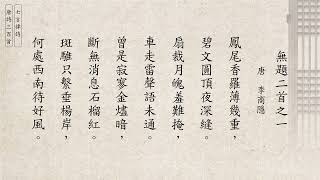 七言律詩
唐詩三百首
無題二首之一
唐 李商隱
鳳尾香羅薄幾重，
碧文圓頂夜深縫。
扇裁月魄羞難掩，
車走雷聲語未通。
曾是寂寥金燼暗，
斷無消息石榴紅。
斑騅只繫垂楊岸，
何處西南待好風。